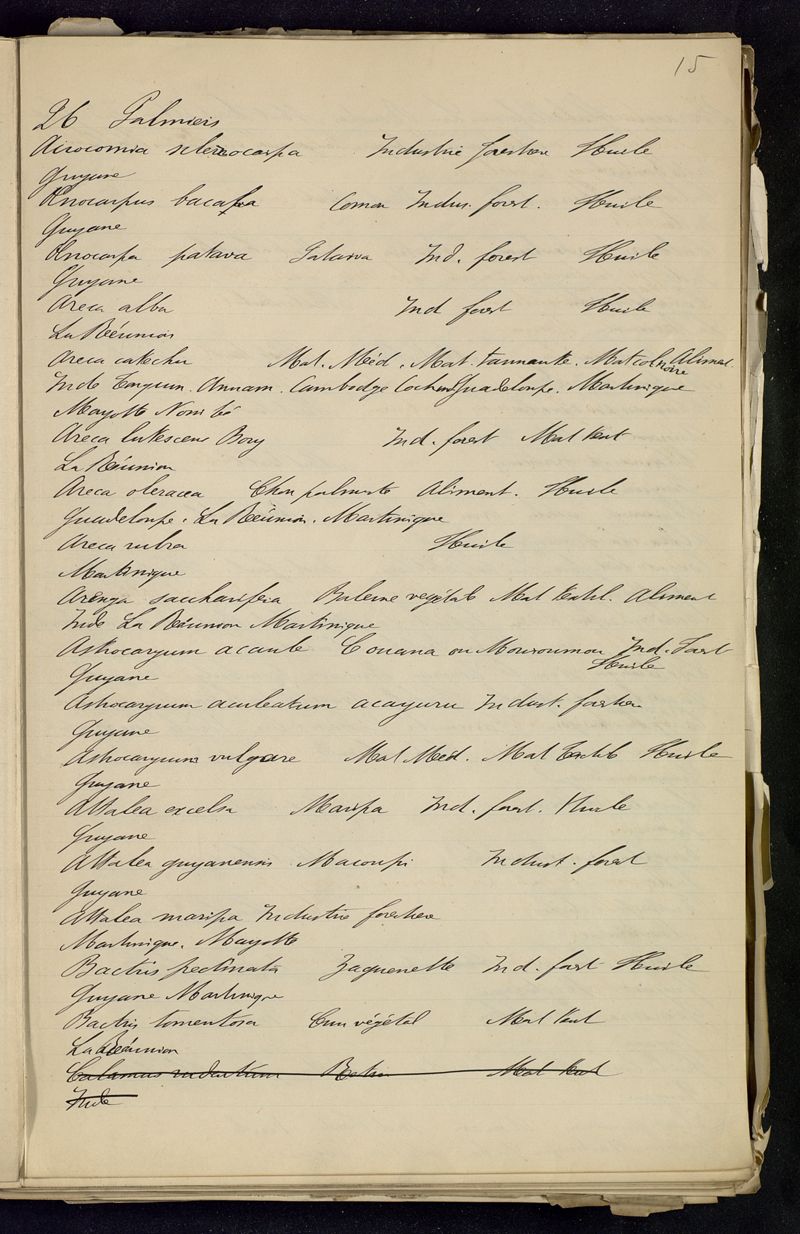 15
26 Palmiers
Acrocomia sclerocarpa Industrie forestiere Huile
Guyane
Œnocarpus bacaba Comou Indus. forest. Huile
Guyane
Œnocarpa patava Patawa Ind. forest Huile
Guyane
Areca alba Ind forest Huile
La Réunion
Areca catechu Mat. Méd. Mat. tannante. Mat colo Aliment.
Inde Tonquin. Annam. Cambodge Cochin Guadeloupe. Martinique
Mayotte Nossi bé
Areca lutescens Bory Ind. forest Mat text
La Réunion
Areca oleracea Chou palmiste Aliment. Huile
Guadeloupe. La Réunion. Martinique
Areca rubra Huile
Martinique
Arenga saccharifera Baleine vegétale Mat textil. Aliment
Inde La Réunion Martinique
Astrocaryum acaule Conana ou Mouroumou Ind. Forst
Huile
Guyane
Astrocaryum aculeatum acayuru Indust. forstiere
Guyane
Astrocaryum vulgare Mat Méd. Mat Textile Huile
Guyane
Attalea excelsa Maripa Ind. forest. Huile
Guyane
Attalea guyanensis Macoupi Indust. forest
Guyane
Attalea maripa Industrie forestiere
Martinique. Mayotte
Bactris pectinata Zaguenette Ind. forst Huile
Guyane Martinique
Bactris tomentosa Crin végétal Mat text
La Réunion
Calamus rudentum Mat text
Inde